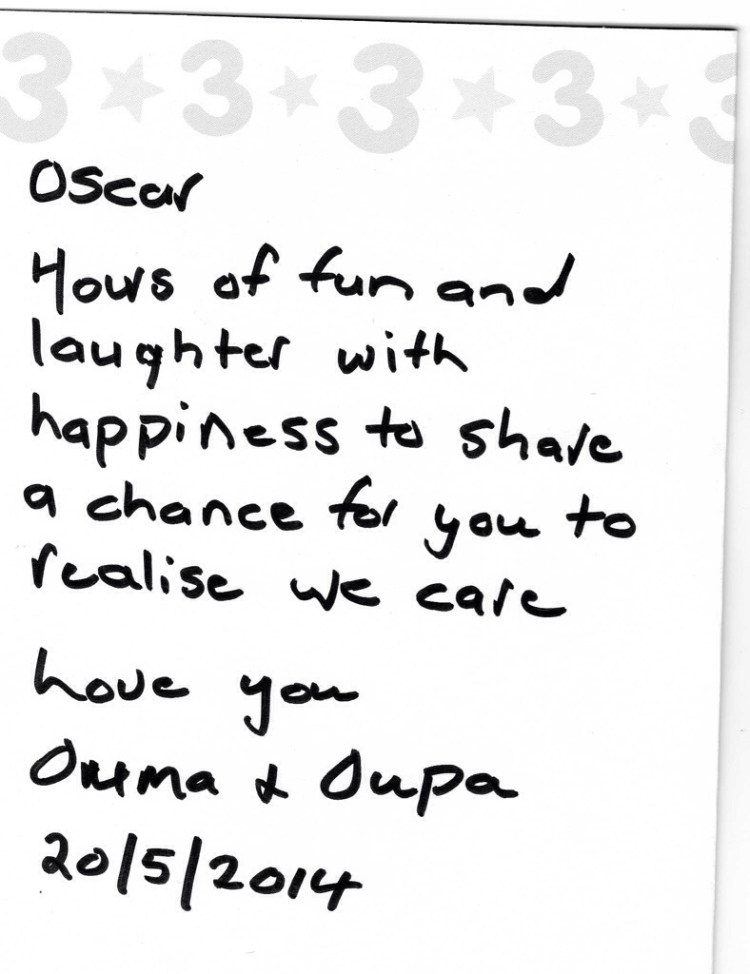 3 3 3 3 3
Oscar
Hours of fun and
laughter with
happiness to share
a chance for you to
realise we care
Love you
Ouma & Oupa
20/5/2014